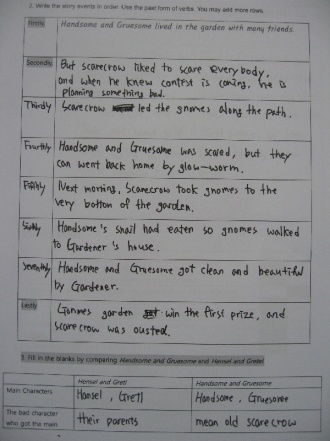 2. Write the story events in order. Use the past form of verbs. You may add more rows.
Firstly
Handsome and Gruesome lived in the garden with many friends.
Secondly
But scarecrow liked to scare everybody,
and when he knew contest is coming, he is
planning something bad.
Thirdly
Scarecrow led the gnomes along the path.
Fourthly
Handsome and Gruesome was scared, but they
can went back home by glow-worm.
Fifthly
Next morning, Scarecrow took gnomes to the
very bottom of the garden.
Sixthly
Handsome's snail had eaten so gnomes walked
to Gardener's house.
Seventhly
Handsome and Gruesome got clean and beautiful
by Gardener.
Lastly
Gnomes garden win the first prize, and
scarecrow was ousted.
3. Fill in the blanks by comparing Handsome and Gruesome and Hansel and Gretel
Hansel and Gretl
Handsome and Gruesome
Main Characters
Hansel, Gretl
Handsome, Gruesome
The bad character
who got the main
their parents
mean old scarecrow